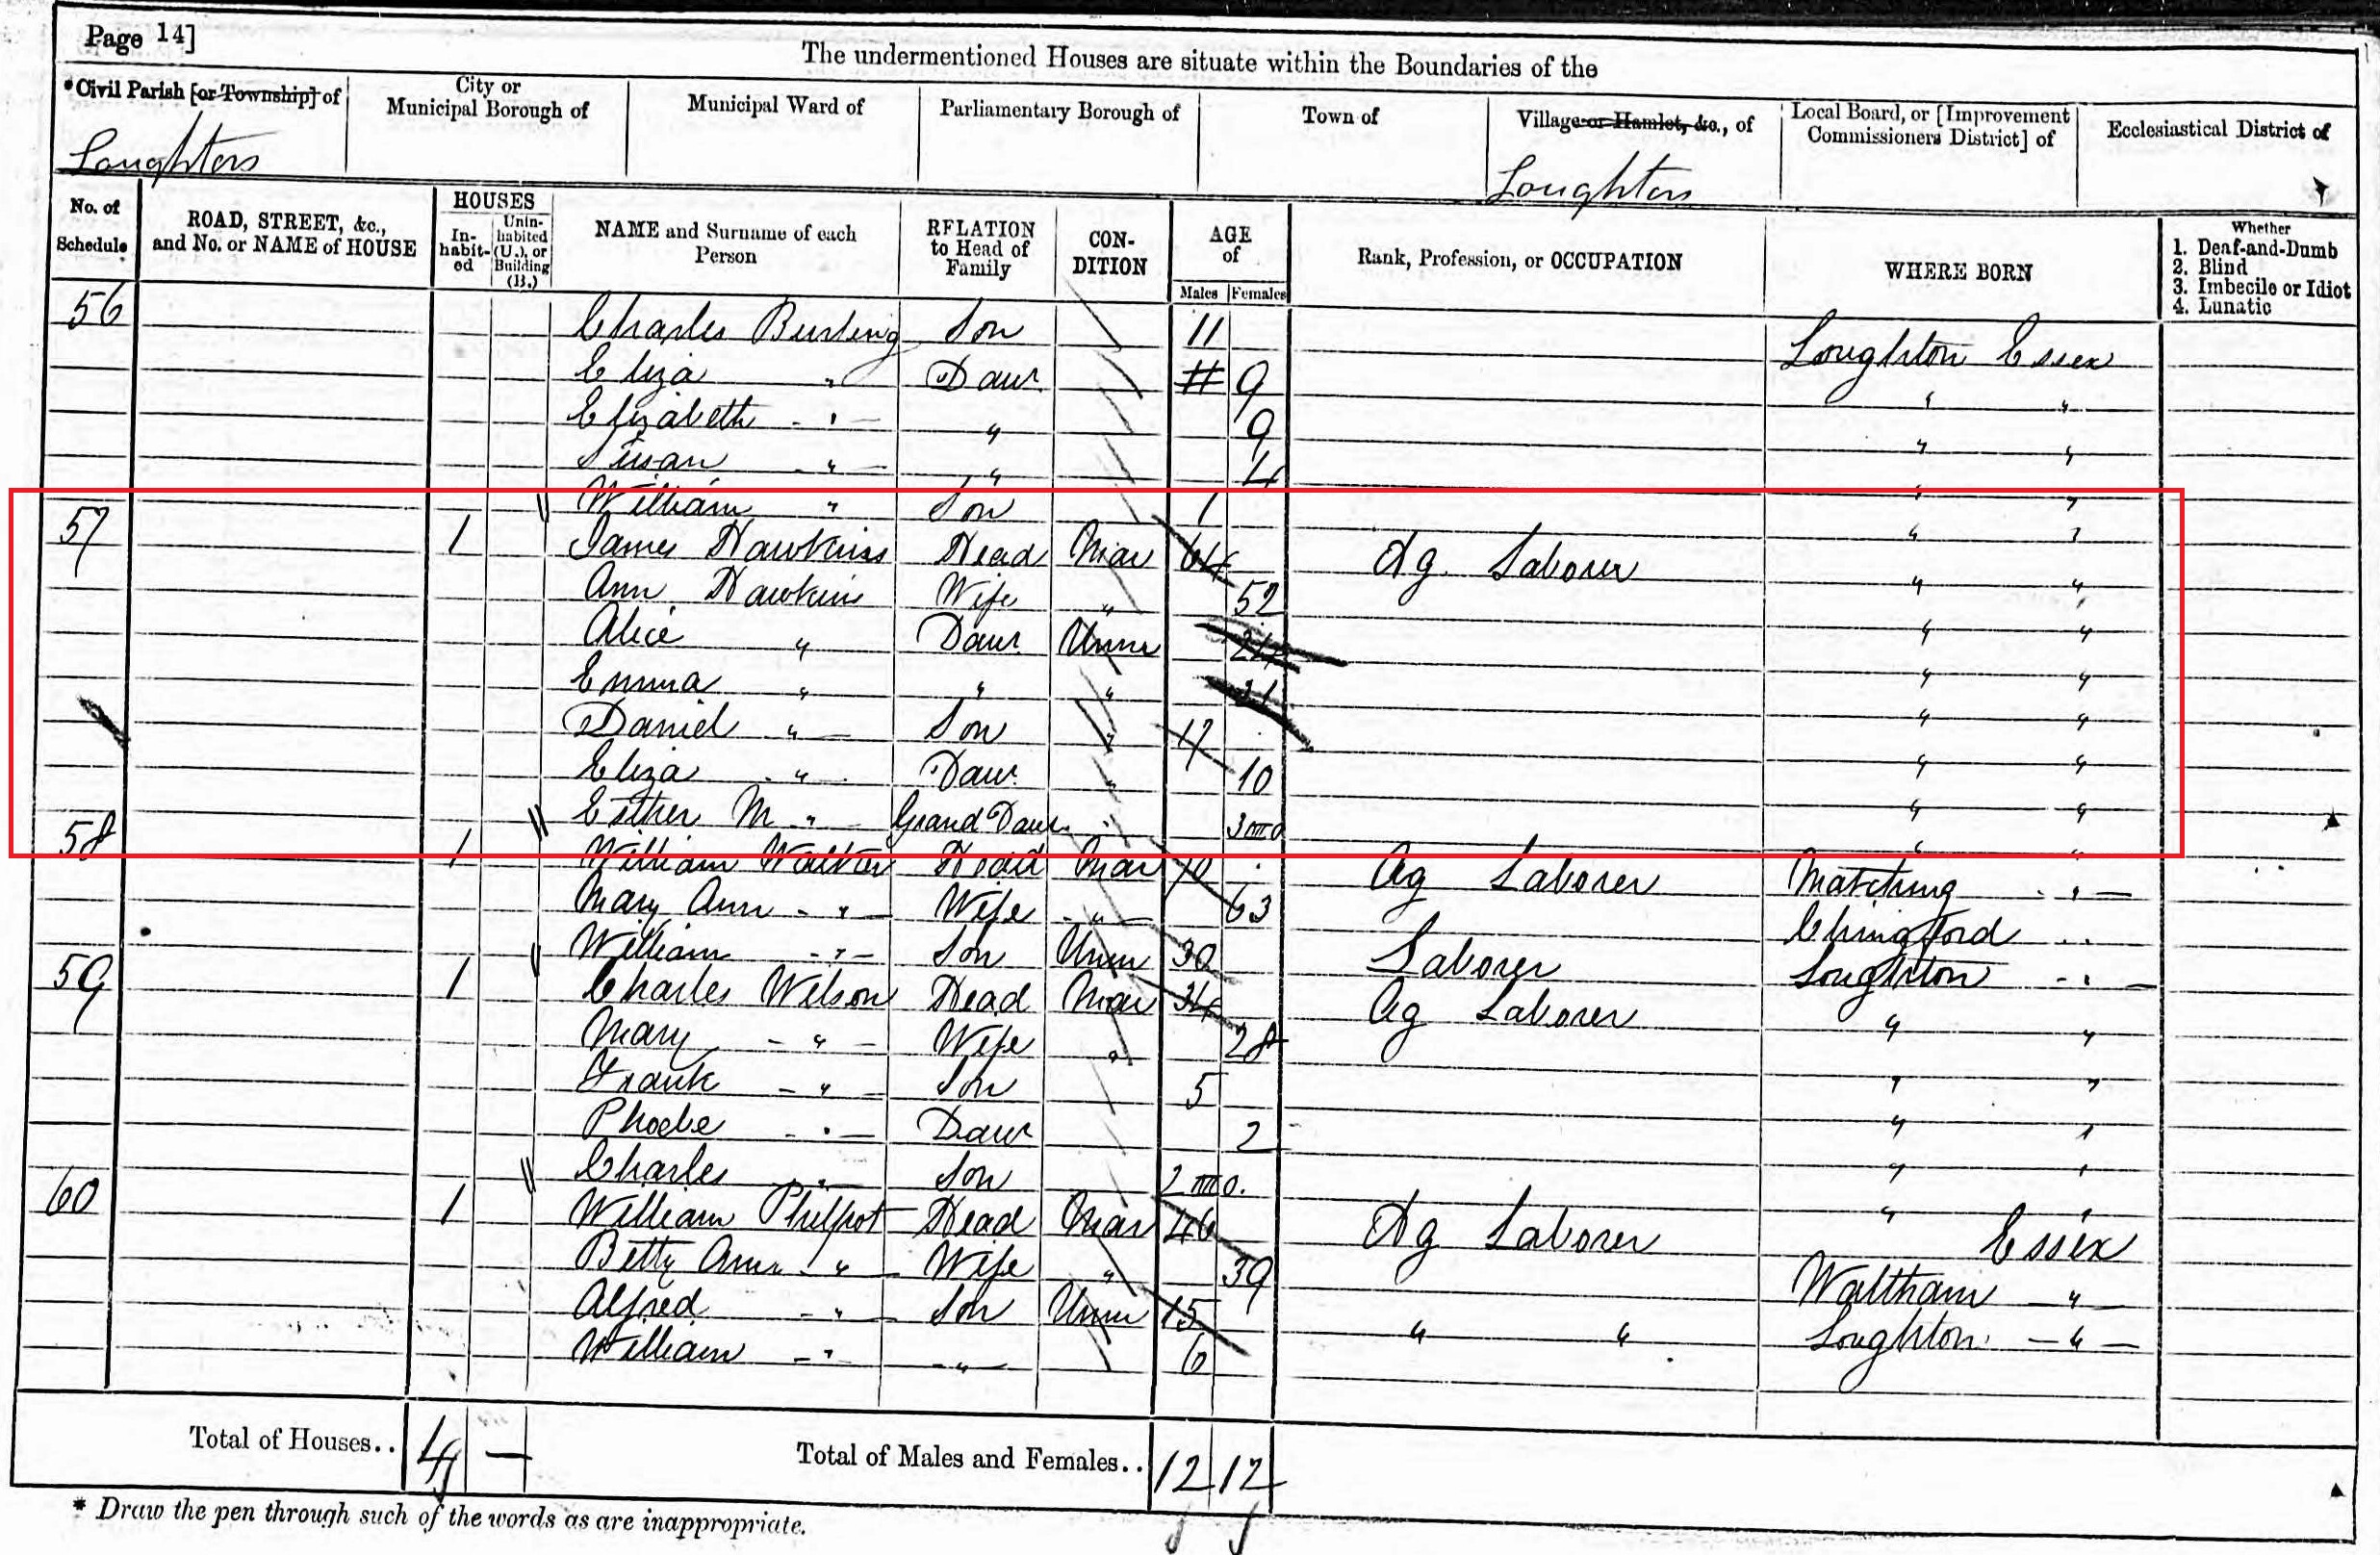 Page 14]
The undermentioned Houses are situate within the Boundaries of the
*Civil Parish [or Township] of
City or Municipal Borough of
Municipal Ward of
Parliamentary Borough of
Town of
Village or Hamlet, &c., of
Local Board, or [Improvement Commissioners District] of
Ecclesiastical District of
Loughton
Loughton
No. of Schedule
ROAD, STREET, &c., and No. or NAME of HOUSE
HOUSES
In-habit-ed
Unin-habited (U.), or Building (B.)
NAME and Surname of each Person
RELATION to Head of Family
CON-DITION
AGE of
Males Females
Rank, Profession, or OCCUPATION
WHERE BORN
Whether
1. Deaf-and-Dumb
2. Blind
3. Imbecile or Idiot
4. Lunatic
56 Charles Burling Son 11 Loughton Essex
Eliza " Daur 9 " "
Elizabeth " " 9 " "
Susan " " 4 " "
William " Son 1 " "
57 1 James Hawkins Head Mar 64 Ag Laborer " "
Ann Hawkins Wife " 52 " "
Alice " Daur Unm 24 " "
Emma " " " 21 " "
Daniel " Son " 17 " "
Eliza " Daur " 10 " "
Esther M " Grand Daur " 3mo " "
58 1 William Walker Head Mar 70 Ag Laborer Matching "
Mary Ann " Wife " 63 Chingford "
William " Son Unm 30 Laborer Loughton "
59 1 Charles Wilson Head Mar 34 Ag Laborer " "
Mary " Wife " 28 " "
Frank " Son 5 " "
Phoebe " Daur 2 " "
Charles " Son 2mo. " "
60 1 William Philpot Head Mar 46 Ag Laborer Essex
Betty Ann " Wife " 39 Waltham "
Alfred " Son Unm 15 " " Loughton "
William " " 6
Total of Houses.. 4 —
Total of Males and Females.. 12 12
* Draw the pen through such of the words as are inappropriate.